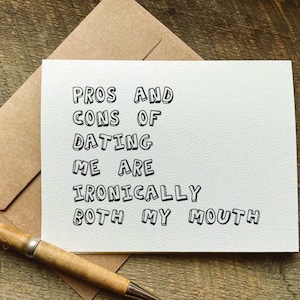 PROS AND
CONS OF
DATING
ME ARE
IRONICALLY
BOTH MY MOUTH